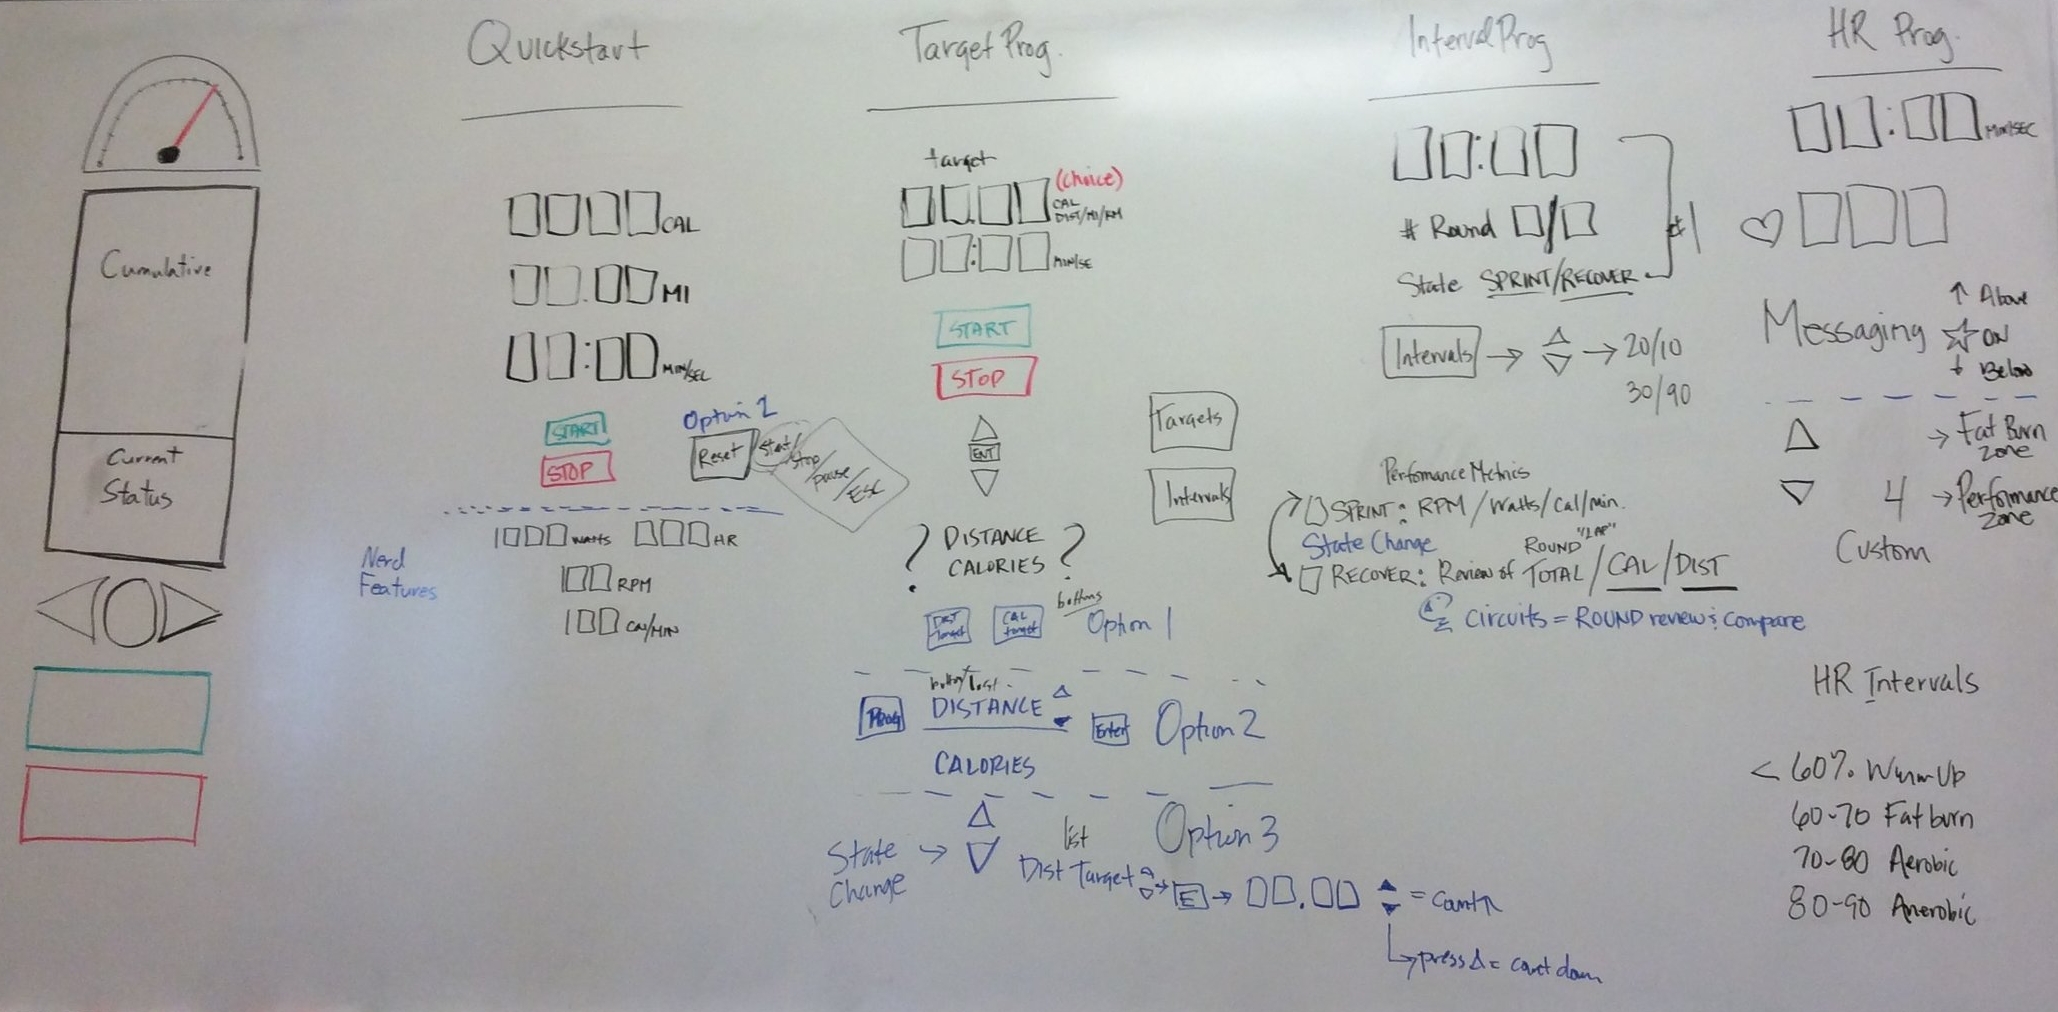 Cumulative
Current
Status
Quickstart
CAL
MI
MIN/SEC
START
STOP
Option 2
Reset
Start/
Stop
/pause/
ESC
WATTS
HR
Nerd
Features
RPM
CAL/MIN
Target Prog.
target
(choice)
CAL
DIST/MI/KM
MIN/SE
START
STOP
ENT
Targets
Intervals
? DISTANCE ?
CALORIES
DIST
target
CAL
target
buttons
Option 1
Prog
DISTANCE
Enter
Option 2
CALORIES
Option 3
State
Change
list
Dist Target
E
= count ↑
press Δ = count down
Interval Prog
# Round
#1
State SPRINT/RECOVER
Intervals → → 20/10
30/90
Performance Metrics
SPRINT: RPM/Watts/Cal/min.
State Change
ROUND "LAP"
RECOVER: Review of TOTAL/CAL/DIST
Circuits = ROUND review & compare
HR Prog.
MIN/SEC
Messaging
↑ Above
☆ ON
↓ Below
→ Fat Burn
zone
4 → Performance
zone
Custom
HR Intervals
< 60% Warm Up
60-70 Fat burn
70-80 Aerobic
80-90 Anerobic